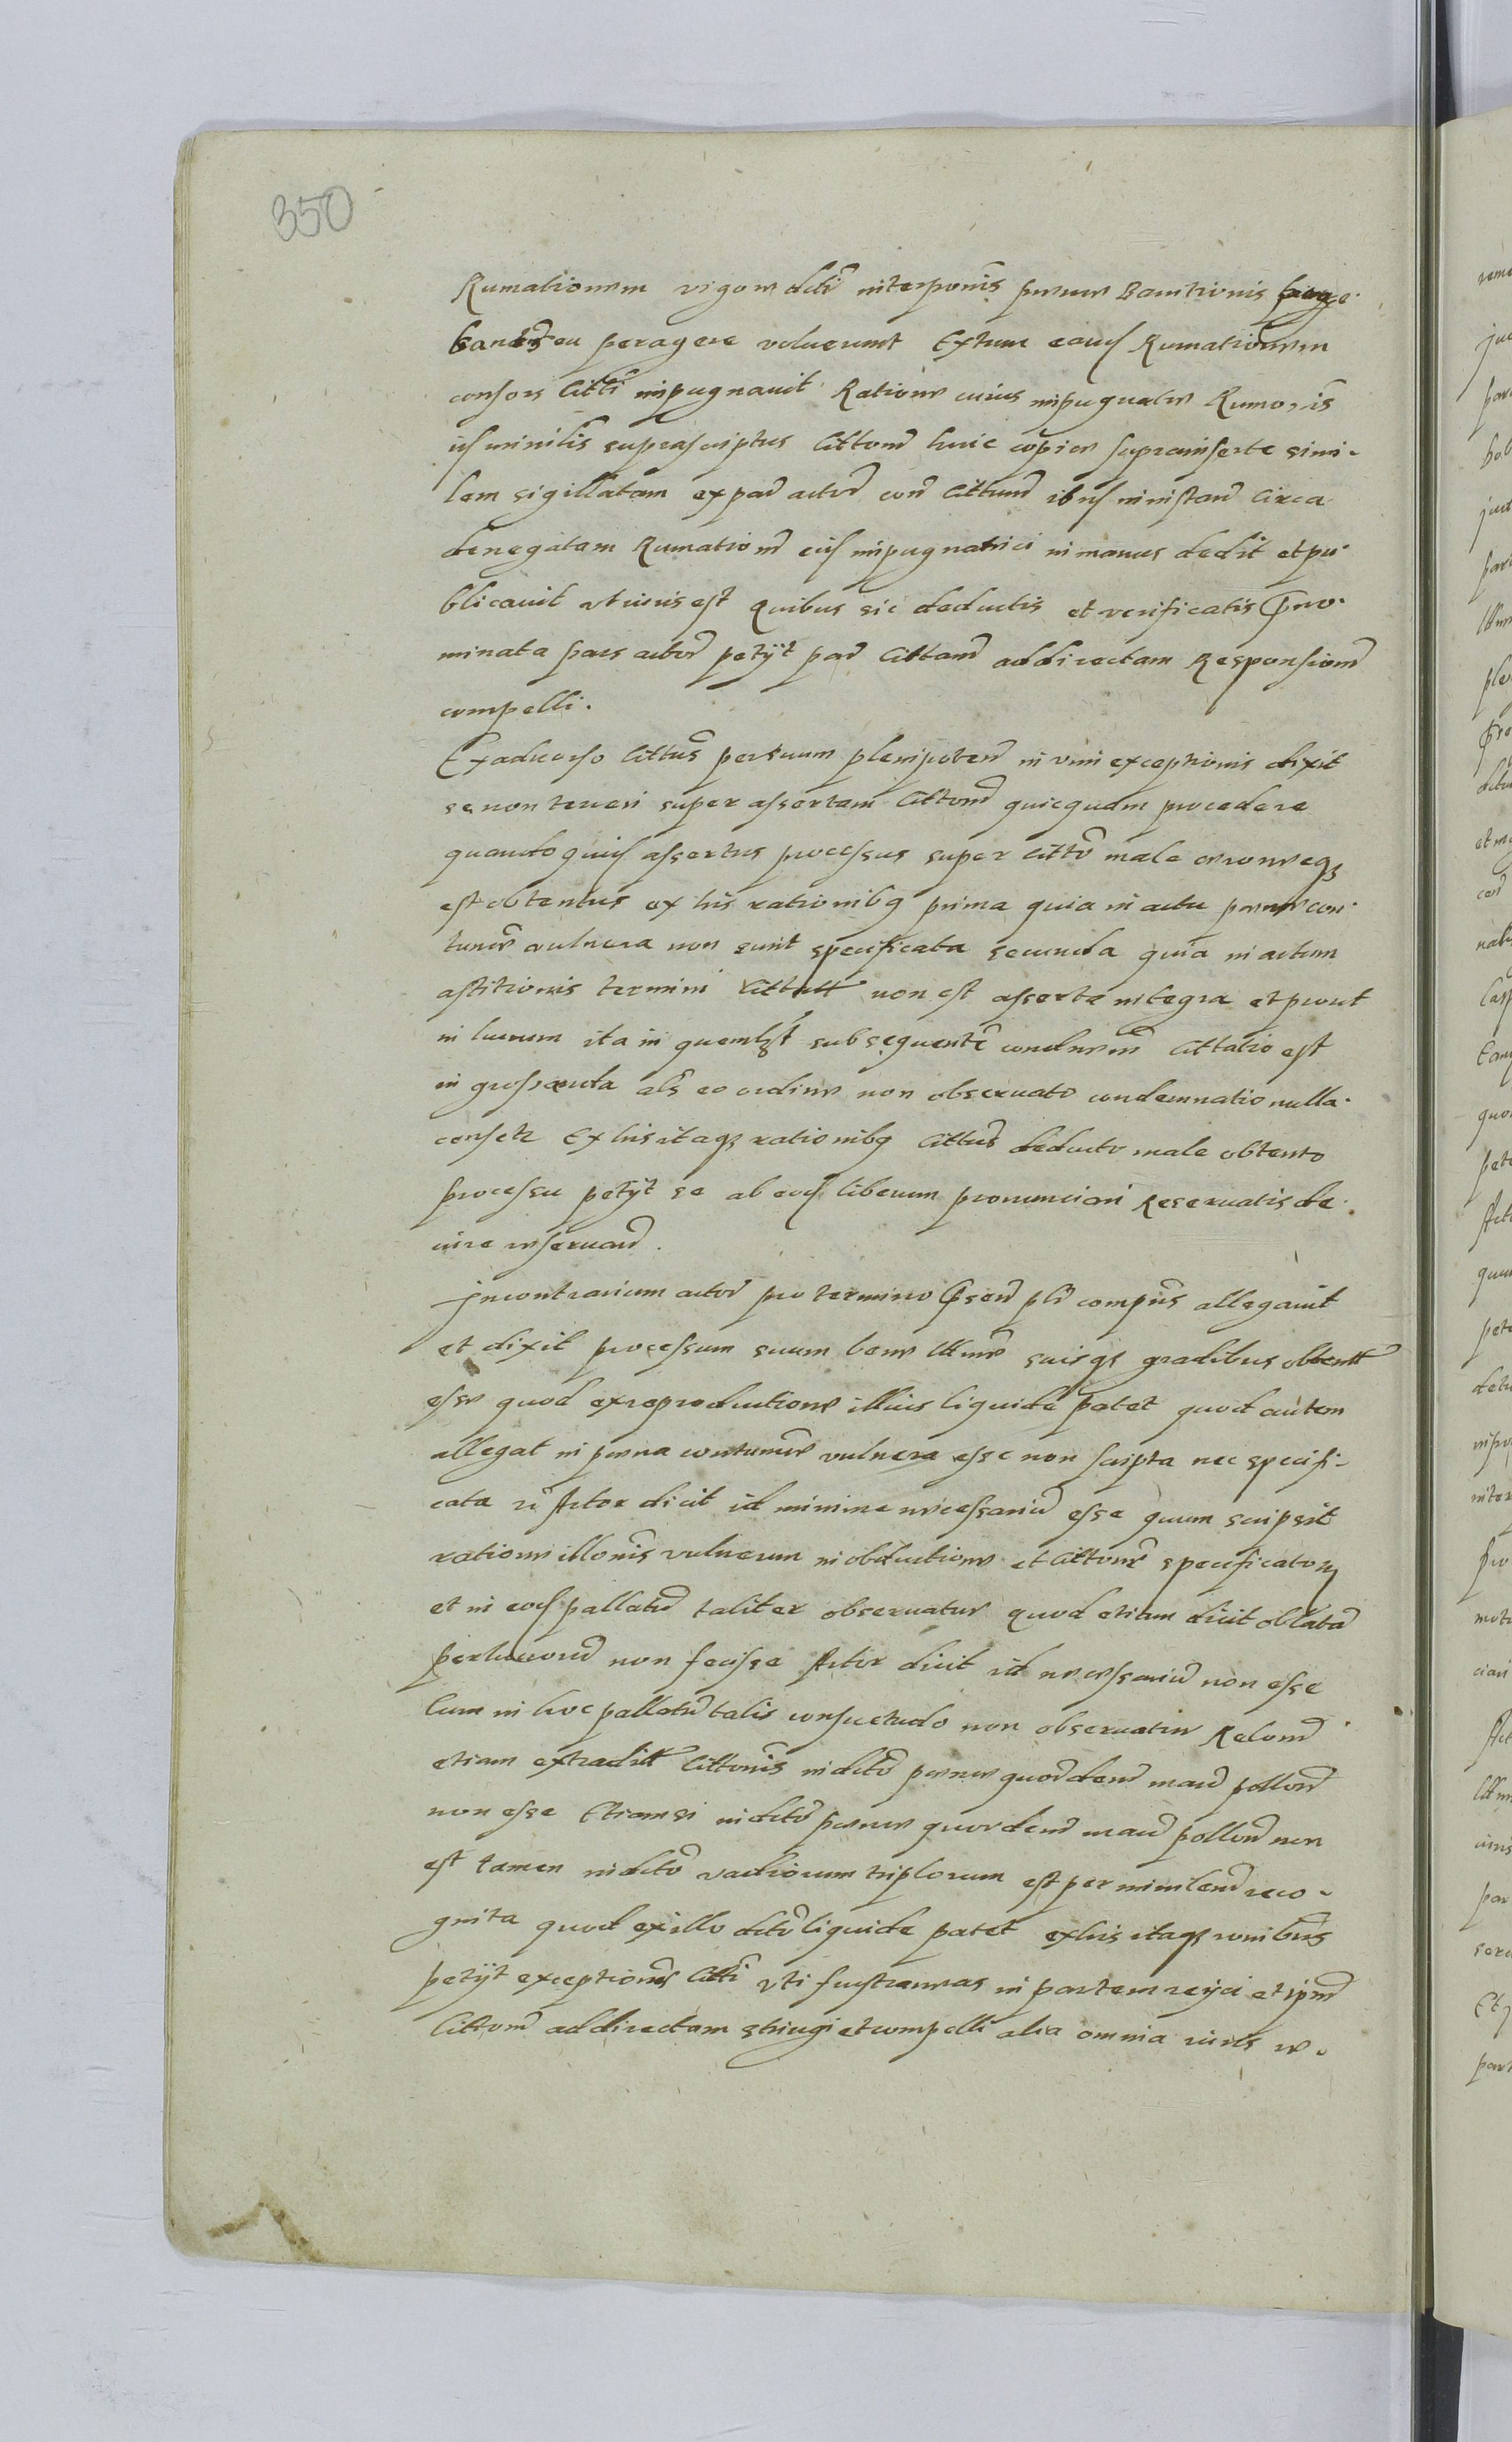 350
Rumationem vigore dcti interponis pœnæ Bannitionis perage
bant seu peragere voluerunt Extunc easd Rumationem
consors Citti impugnavit Ratione cuius impugnatæ Rumonis
is ministlis suprascriptus Cittonem huic copiæ suprainsertæ simi-
lem sigillatam ex par actor con Cittum ibid in instan circa
denegatam Rumationem eid impugnatrici in manus dedit et pu-
blicavit ut iuris est Quibus sic deductis et verificatis Pno-
minata pars actor petyt par Cittam ad directam Responsionem
compelli.
Ex adverso Cittus per suum plenipoten in vim exceptionis dixit
se non teneri super assertam Cittonem quicquam procedere
quando quid assertus processus super citto male erroneeq
est obtentus ex his rationibq prima quia in actu pœnæ con-
tumæ vulnera non sunt specificata secunda quia in actum
astitionis termini Cittatt non est asserta integra et prout
in lucrum ita in quemlzt subsequente condemnem Cittatio est
ingrossanda als eo ordine non observato condemnatio nulla
censetr Ex his itaq rationibq Cittus deducto male obtento
processu petyt se ab eod liberum pronunciari Reservatis de
iure reservan.
Incontrarium actor pro termino Psen pli compns allegavit
et dixit processum suum bene lttime suisq gradibus obtentt
esse quod ex reproductione illius liquide patet quod autem
allegat in pœna contumæ vulnera esse non scripta nec specifi-
cata Actor dicit id minime necessarium esse quum scripsit
ratione illonis vulnerum in obductione et Cittone specificatorum
et in eod pallatio taliter observatur quod etiam dicit oblatam
per lucrum non fecisse Actor dicit id necessarium non esse
Cum in hoc pallatio talis consuetudo non observatur Relonem
etiam extraditt Cittonis in dcto pœnæ quordem man pollon
non esse Etiamsi in dcto pœnæ quordem man pollon non
est tamen in dcto vadiorum triplorum est per minilem reco-
gnita quod ex illo dcto liquide patet ex his itaq ronibus
petyt exceptiones Citti uti frustraneas in partem reyci et ipm
Cittum ad directam stringi et compelli alia omnia iuris re-